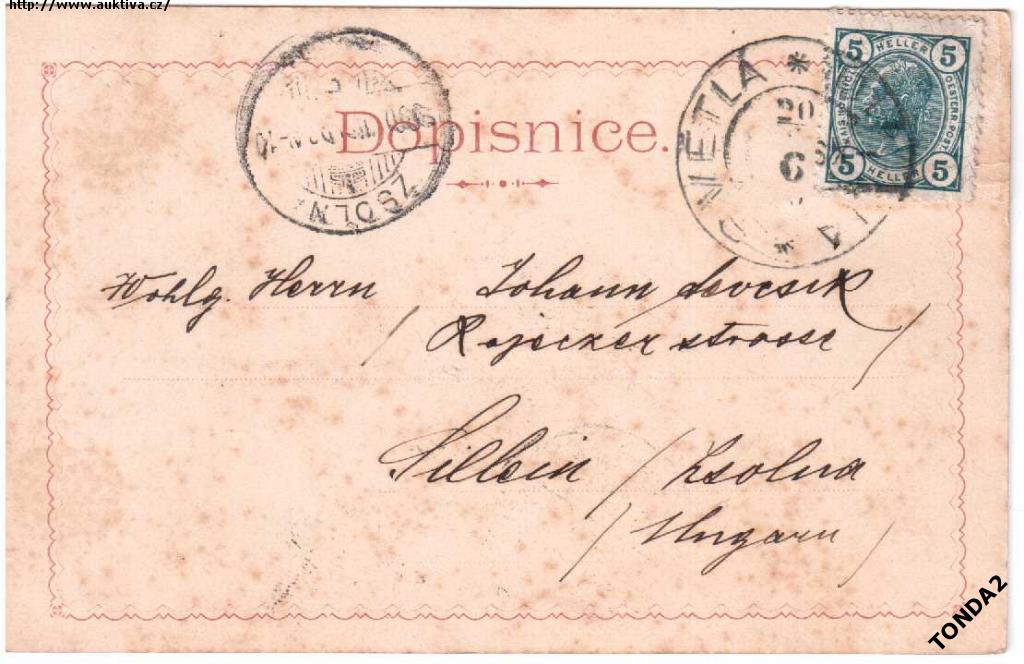 http://www.auktiva.cz/
Dopisnice.
ZSOLNA
5 HELLER 5
5 HELLER 5
20
6
Wohlg. Herrn / Johann Levcsik
Rajeczer strasse /
Sillein / Zsolna
/ Ungarn /
TONDA2